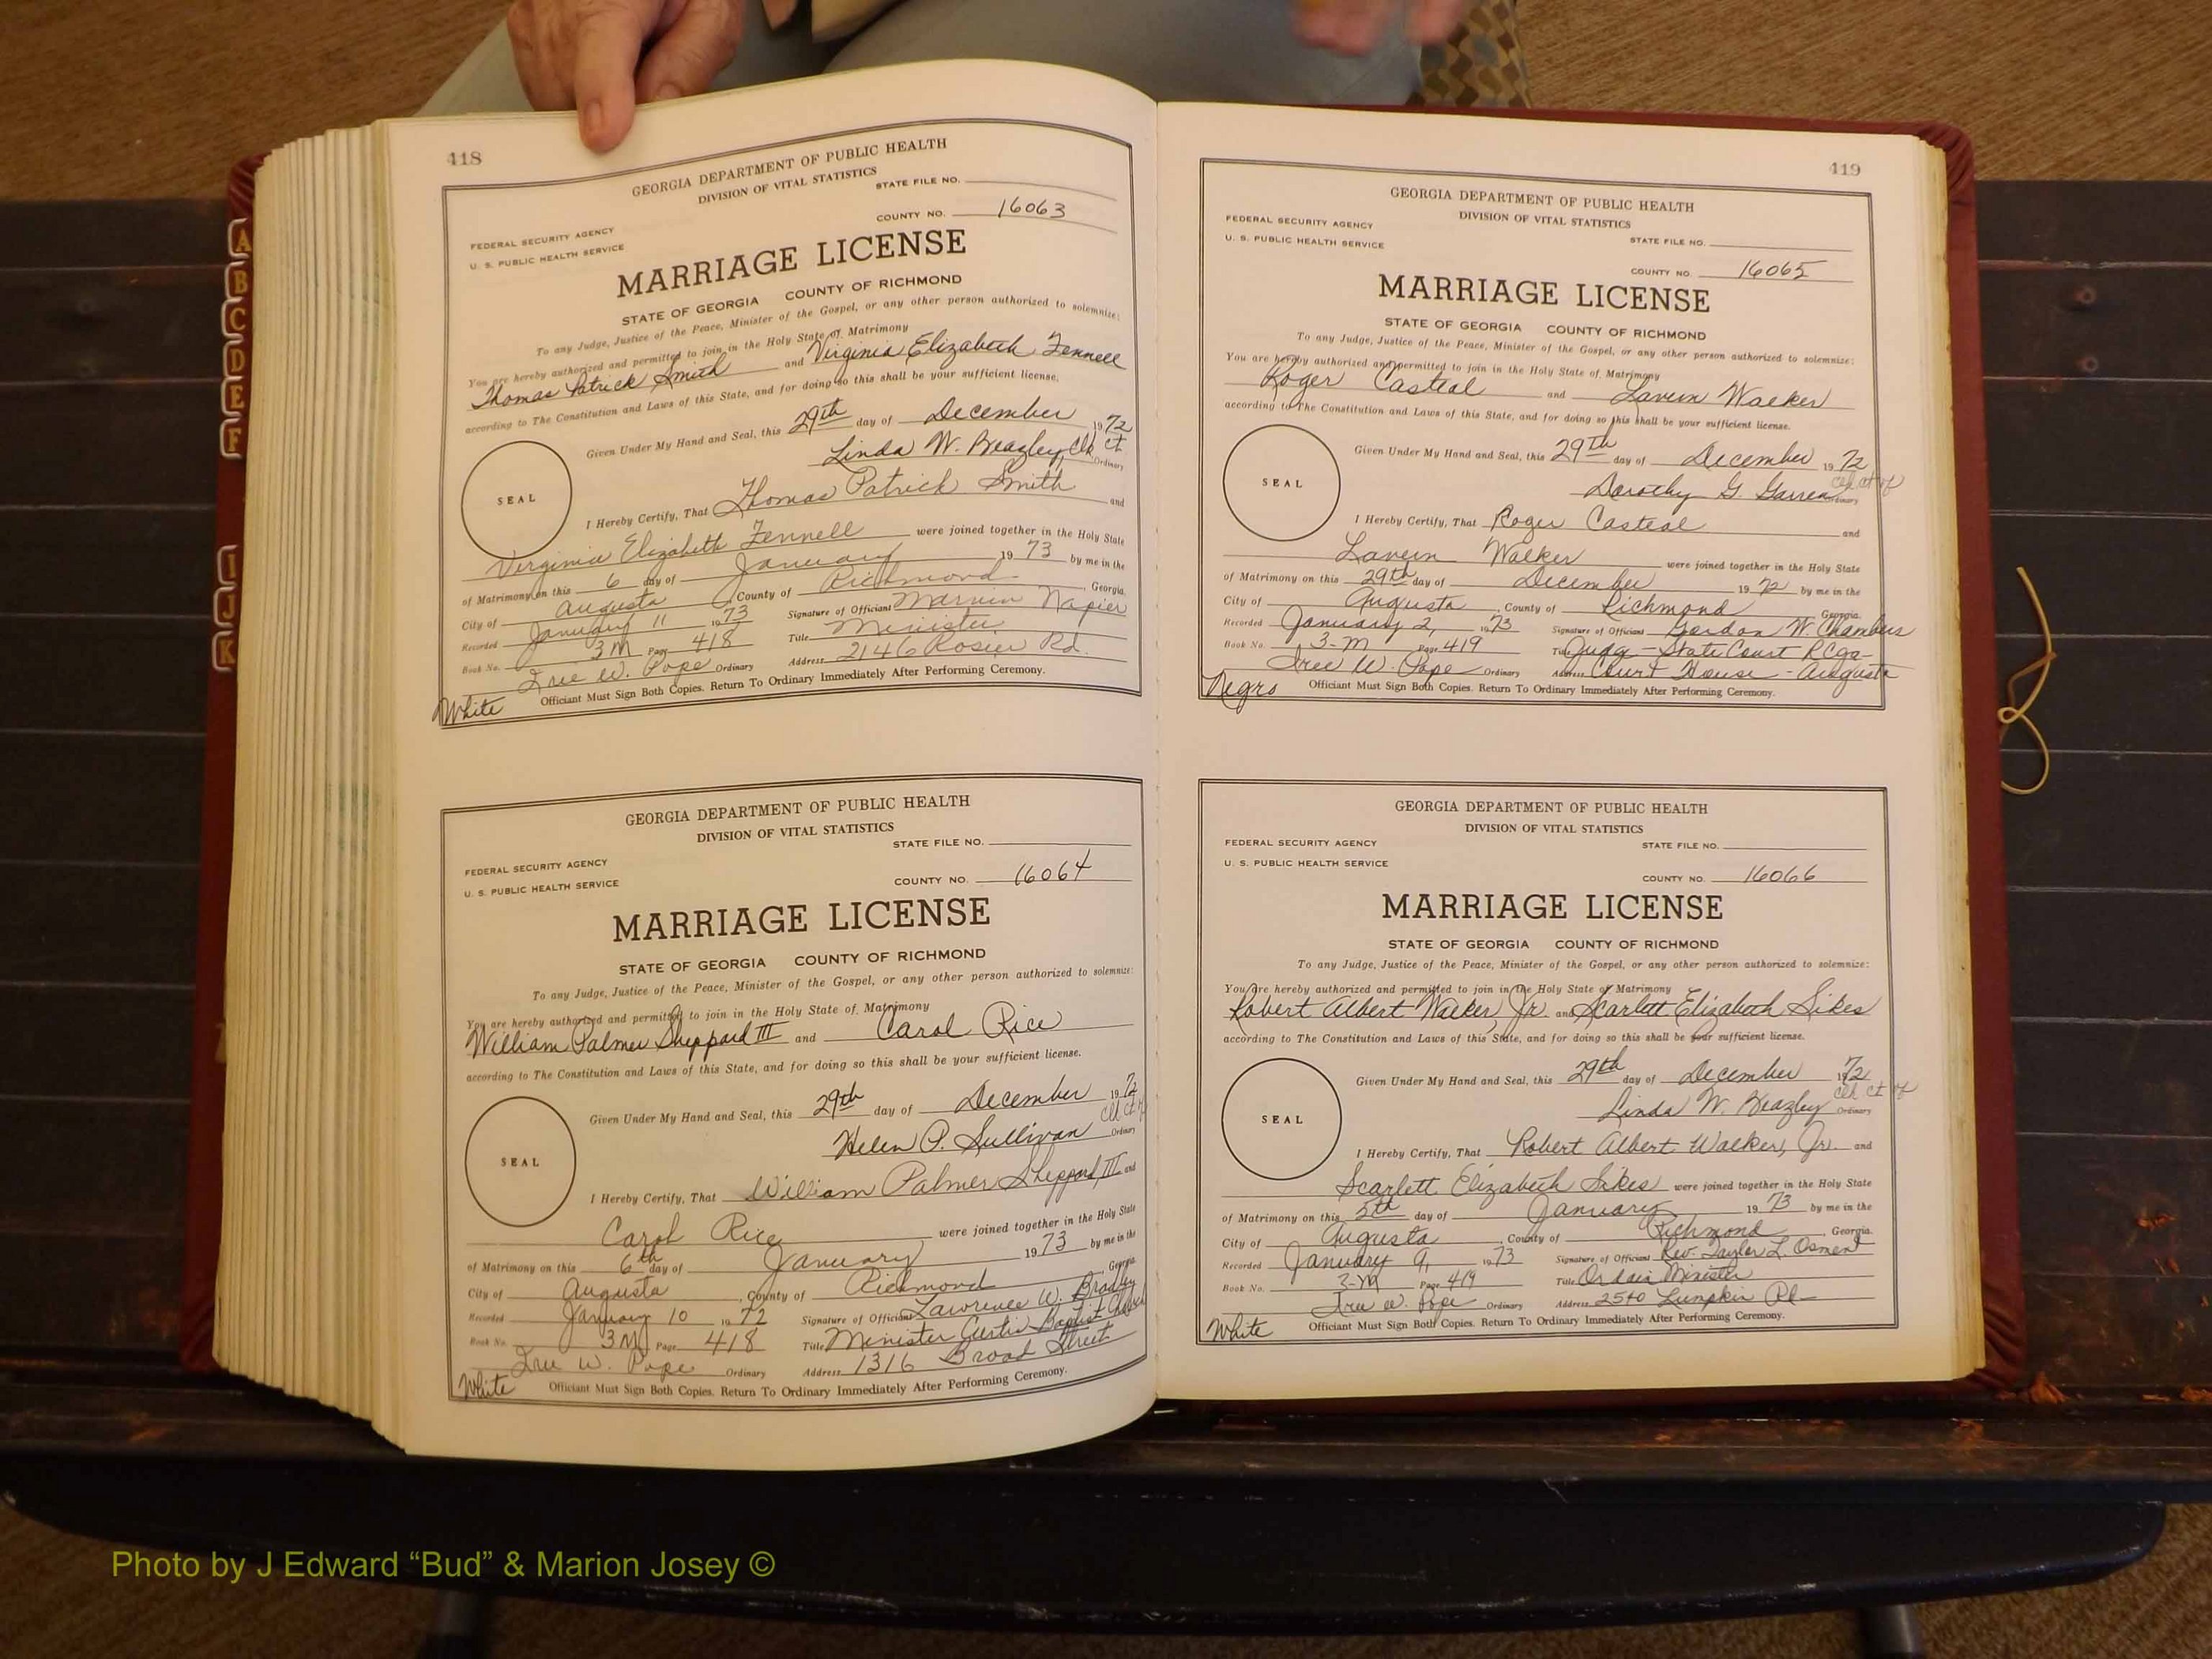 A
B
C
D
E
F
I
J
K
418
GEORGIA DEPARTMENT OF PUBLIC HEALTH
DIVISION OF VITAL STATISTICS
STATE FILE NO.
COUNTY NO. 16063
FEDERAL SECURITY AGENCY
U. S. PUBLIC HEALTH SERVICE
MARRIAGE LICENSE
STATE OF GEORGIA COUNTY OF RICHMOND
To any Judge, Justice of the Peace, Minister of the Gospel, or any other person authorized to solemnize:
You are hereby authorized and permitted to join in the Holy State of Matrimony
Thomas Patrick Smith and Virginia Elizabeth Fennell
according to The Constitution and Laws of this State, and for doing so this shall be your sufficient license.
Given Under My Hand and Seal, this 29th day of December 1972
Linda W. Beazley, Clk Ct. Ordinary
SEAL
I Hereby Certify, That Thomas Patrick Smith and
Virginia Elizabeth Fennell were joined together in the Holy State
of Matrimony on this 6 day of January 1973 by me in the
City of Augusta, County of Richmond, Georgia.
Recorded January 11 1973 Signature of Officiant Marvin Napier
Book No. 3M Page 418 Title Minister
Iree W. Pope Ordinary Address 2146 Rosier Rd.
White Officiant Must Sign Both Copies. Return To Ordinary Immediately After Performing Ceremony.
GEORGIA DEPARTMENT OF PUBLIC HEALTH
DIVISION OF VITAL STATISTICS
STATE FILE NO.
FEDERAL SECURITY AGENCY
U. S. PUBLIC HEALTH SERVICE
COUNTY NO. 16064
MARRIAGE LICENSE
STATE OF GEORGIA COUNTY OF RICHMOND
To any Judge, Justice of the Peace, Minister of the Gospel, or any other person authorized to solemnize:
You are hereby authorized and permitted to join in the Holy State of Matrimony
William Palmer Sheppard III and Carol Rice
according to The Constitution and Laws of this State, and for doing so this shall be your sufficient license.
Given Under My Hand and Seal, this 29th day of December 1972
Helen P. Sullivan Clk Ct of Ordinary
SEAL
I Hereby Certify, That William Palmer Sheppard, III and
Carol Rice were joined together in the Holy State
of Matrimony on this 6th day of January 1973 by me in the
City of Augusta, County of Richmond Georgia
Recorded January 10 1972 Signature of Officiant Lawrence W. Bradley
Book No. 3M Page 418 Title Minister Curtis Baptist Church
Iree W. Pope Ordinary Address 1316 Broad Street
White Officiant Must Sign Both Copies. Return To Ordinary Immediately After Performing Ceremony.
419
GEORGIA DEPARTMENT OF PUBLIC HEALTH
DIVISION OF VITAL STATISTICS
FEDERAL SECURITY AGENCY
U. S. PUBLIC HEALTH SERVICE
STATE FILE NO.
COUNTY NO. 16065
MARRIAGE LICENSE
STATE OF GEORGIA COUNTY OF RICHMOND
To any Judge, Justice of the Peace, Minister of the Gospel, or any other person authorized to solemnize:
You are hereby authorized and permitted to join in the Holy State of Matrimony
Roger Casteal and Lavern Walker
according to The Constitution and Laws of this State, and for doing so this shall be your sufficient license.
Given Under My Hand and Seal, this 29th day of December 1972
Dorothy G. Garren Clk Ct of Ordinary
SEAL
I Hereby Certify, That Roger Casteal and
Lavern Walker were joined together in the Holy State
of Matrimony on this 29th day of December 1972 by me in the
City of Augusta, County of Richmond Georgia.
Recorded January 2, 1973 Signature of Officiant Gordon W. Chambers
Book No. 3-M Page 419 Title Judge - State Court RCga
Iree W. Pope Ordinary Address Court House - Augusta
Negro Officiant Must Sign Both Copies. Return To Ordinary Immediately After Performing Ceremony.
GEORGIA DEPARTMENT OF PUBLIC HEALTH
DIVISION OF VITAL STATISTICS
FEDERAL SECURITY AGENCY
U. S. PUBLIC HEALTH SERVICE
STATE FILE NO.
COUNTY NO. 16066
MARRIAGE LICENSE
STATE OF GEORGIA COUNTY OF RICHMOND
To any Judge, Justice of the Peace, Minister of the Gospel, or any other person authorized to solemnize:
You are hereby authorized and permitted to join in the Holy State of Matrimony
Robert Albert Walker, Jr. and Scarlett Elizabeth Sikes
according to The Constitution and Laws of this State, and for doing so this shall be your sufficient license.
Given Under My Hand and Seal, this 29th day of December 1972
Linda W. Beazley Clk Ct of Ordinary
SEAL
I Hereby Certify, That Robert Albert Walker, Jr. and
Scarlett Elizabeth Sikes were joined together in the Holy State
of Matrimony on this 5th day of January 1973 by me in the
City of Augusta, County of Richmond, Georgia.
Recorded January 9, 1973 Signature of Officiant Rev. Taylor L. Osment
Book No. 3-M Page 419 Title Ordain Minister
Iree W. Pope Ordinary Address 2540 Lumpkin Rd
White Officiant Must Sign Both Copies. Return To Ordinary Immediately After Performing Ceremony.
Photo by J Edward “Bud” & Marion Josey ©